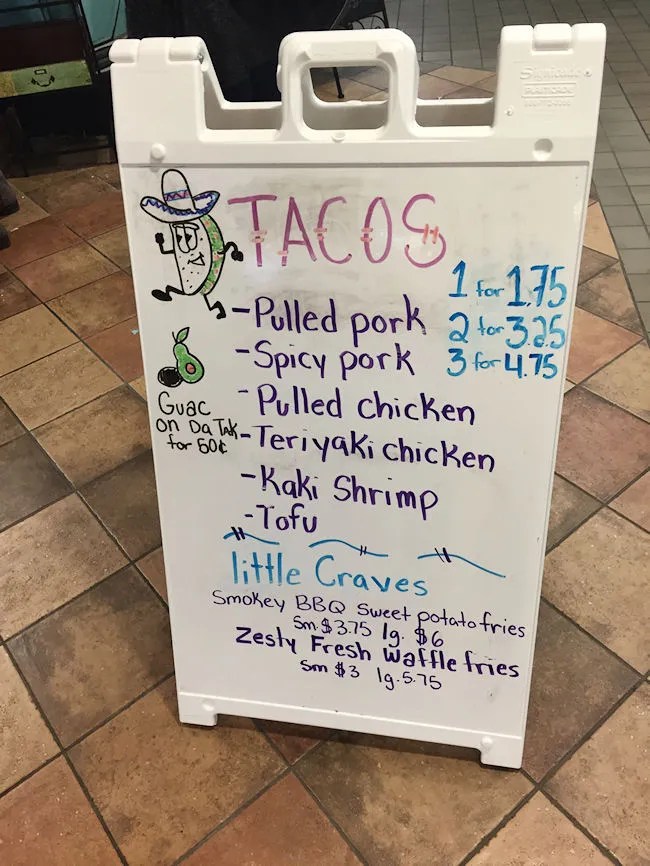 TACOS
1 for 1.75
2 for 3.25
3 for 4.75
- Pulled pork
- Spicy pork
- Pulled chicken
- Teriyaki chicken
- Kaki Shrimp
- Tofu
Guac
on Da Tak
for 50¢
little Craves
Smokey BBQ Sweet potato fries
Sm. $3.75 lg. $6
Zesty Fresh Waffle fries
Sm $3 lg. 5.75